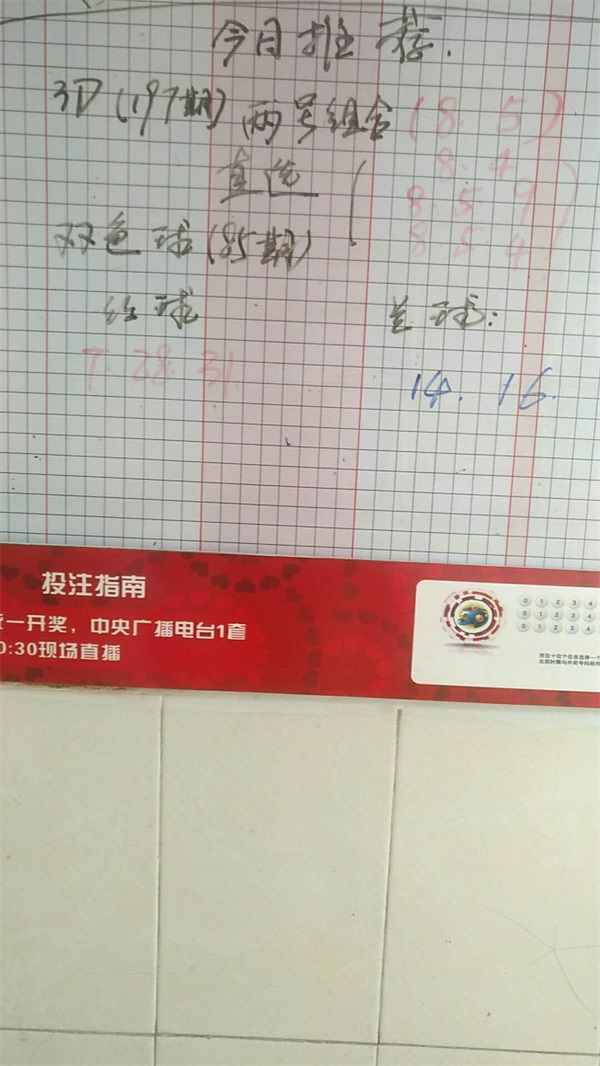 今日推荐.
3D(197期) 两号组合(8.5)
8.4
直选
8.5.9
8.5.4
双色球(85期)
红球 兰球:
7.28.31
14.16.
投注指南
一开奖,中央广播电台1套
0:30现场直播
0 1 2 3 4
0 1 2 3 4
0 1 2 3 4